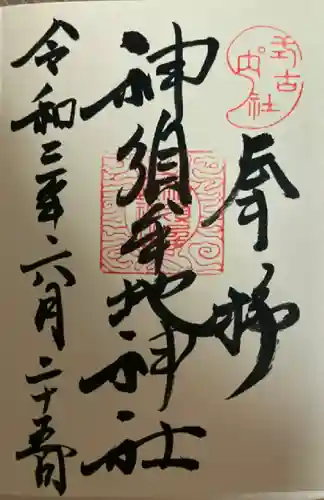 奉拝
神須牟地神社
令和三年六月二十五日